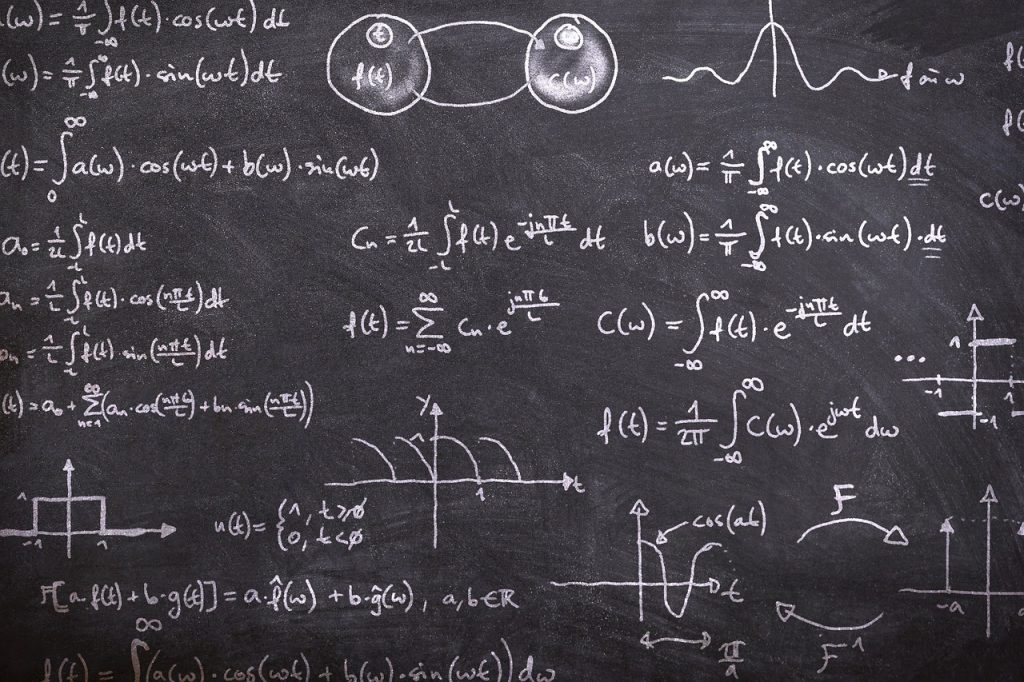 (ω) = 1/π ∫_{-∞} f(t)·cos(ωt) dt
(ω) = 1/π ∫_{-∞}^{∞} f(t)·sin(ωt) dt
t
f(t)
ω
C(ω)
f ω
f(
f(
(t) = ∫_0^∞ a(ω)·cos(ωt) + b(ω)·sin(ωt)
a(ω) = 1/π ∫_{-∞}^{∞} f(t)·cos(ωt) dt
C(ω)
a₀ = 1/2L ∫_{-L}^{L} f(t) dt
Cn = 1/2L ∫_{-L}^{L} f(t) e^{-jnπt/L} dt
b(ω) = 1/π ∫_{-∞}^{∞} f(t)·sin(ωt)·dt
an = 1/L ∫_{-L}^{L} f(t)·cos(nπt/L) dt
f(t) = ∑_{n=-∞}^{∞} Cn·e^{jnπt/L}
C(ω) = ∫_{-∞}^{∞} f(t)·e^{-jnπt/L} dt
bn = 1/L ∫_{-L}^{L} f(t)·sin(nπt/L) dt
... 1 -1 1 -1
(t) = a₀ + ∑_{n=1}^{∞} (an·cos(nπt/L) + bn·sin(nπt/L))
y 1 1 t
f(t) = 1/2π ∫_{-∞}^{∞} C(ω)·e^{jωt} dω
1 -1 1
u(t) = { 1, t>0
0, t<0
cos(at)
t
π/a
F
F⁻¹
-a
F[a·f(t) + b·g(t)] = a·f̂(ω) + b·ĝ(ω), a,b∈ℝ
f(t) = ∫^∞ (a(ω)·cos(ωt) + b(ω)·sin(ωt)) dω